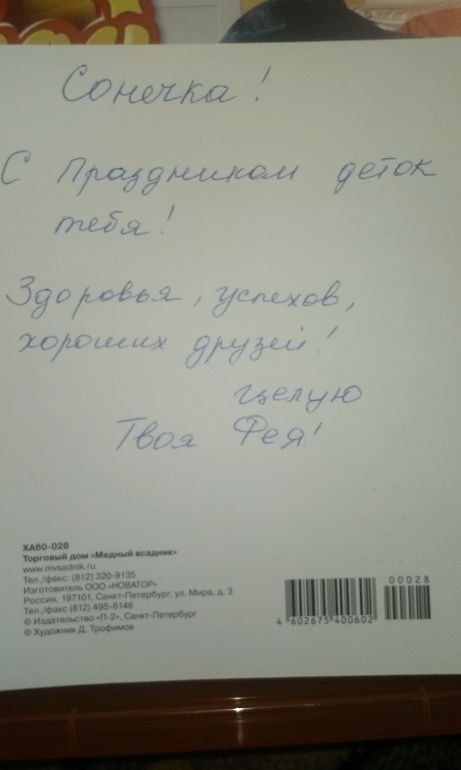 Сонечка!
С Праздником деток
тебя!
Здоровья, успехов,
хороших друзей!
целую
Твоя Фея!
ХА60-028
Торговый дом «Медный всадник»
www.mvsadnik.ru
Тел./факс: (812) 320-9135
Изготовитель ООО «НОВАТОР»
Россия, 197101, Санкт-Петербург, ул. Мира, д. 3
Тел./факс (812) 495-6146
© Издательство «П-2», Санкт-Петербург
© Художник Д. Трофимов
00028
4 602675 400602